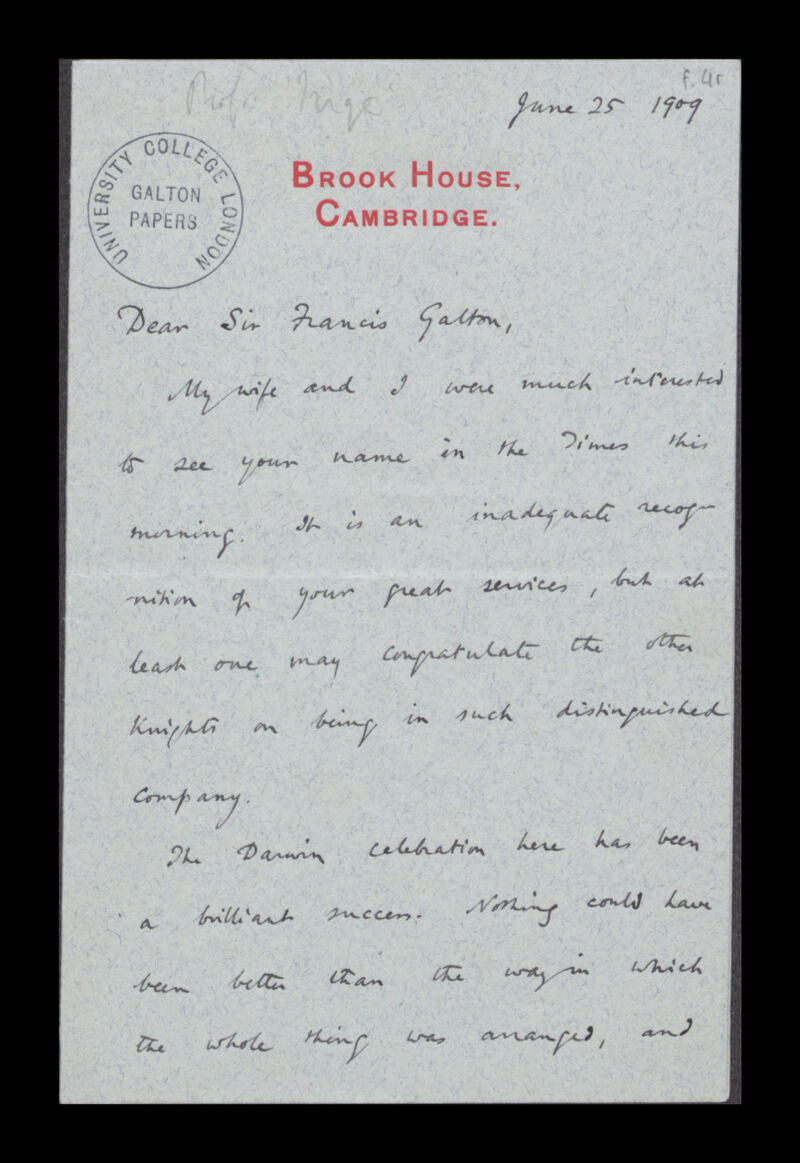 Prof. Inge
f. 4r
June 25 1909
UNIVERSITY COLLEGE LONDON
GALTON
PAPERS
BROOK HOUSE,
CAMBRIDGE.
Dear Sir Francis Galton,
My wife and I were much interested
to see your name in the Times this
morning. It is an inadequate recog-
nition of your great services, but at
least one may congratulate the other
Knights on being in such distinguished
company.
The Darwin celebration here has been
a brilliant success. Nothing could have
been better than the way in which
the whole thing was arranged, and